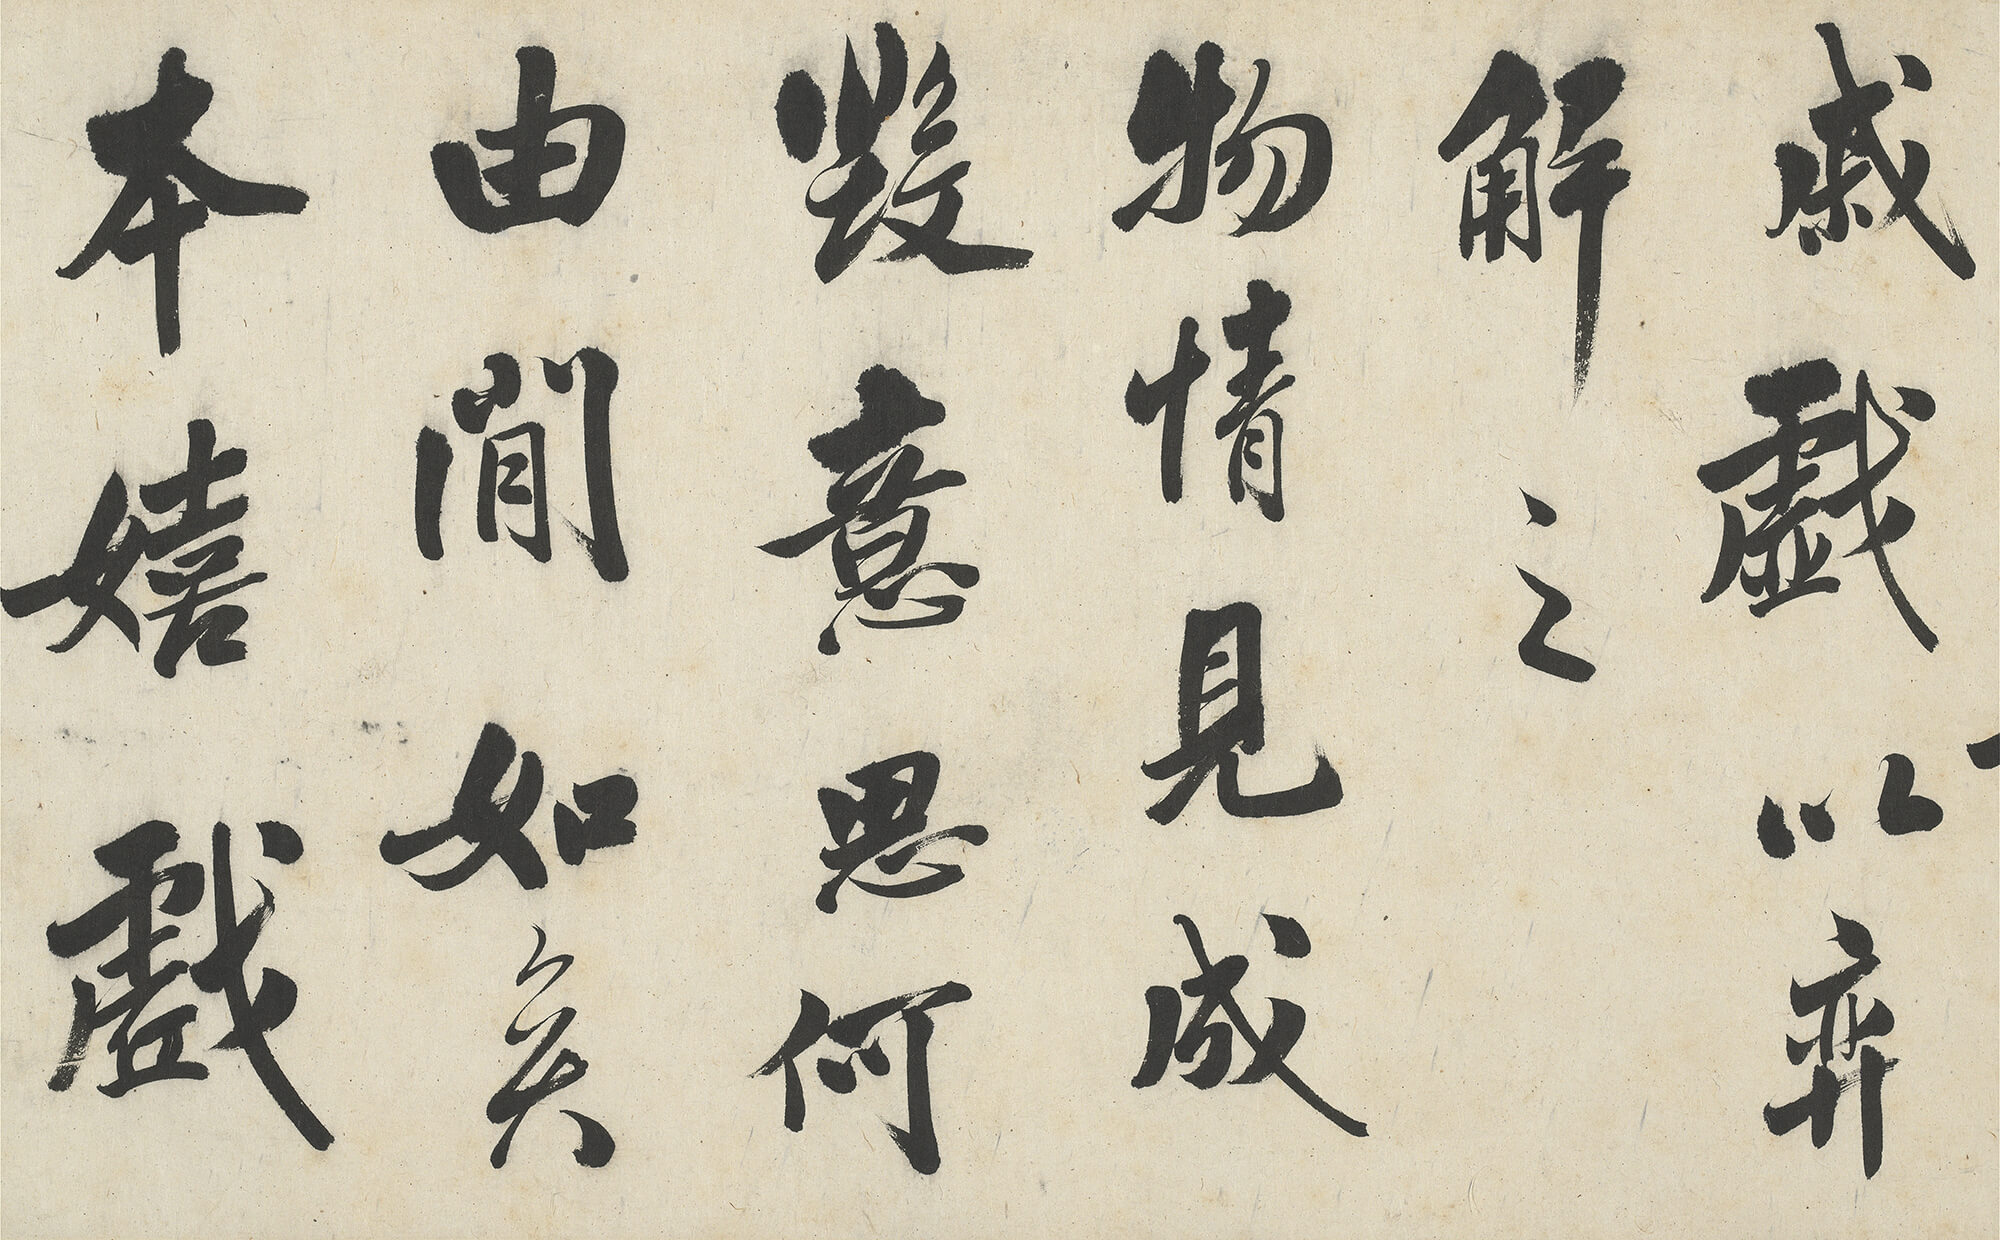 戚戲以弈
解之
物情見成
毀意思何
由閒如矣
本嬉戲